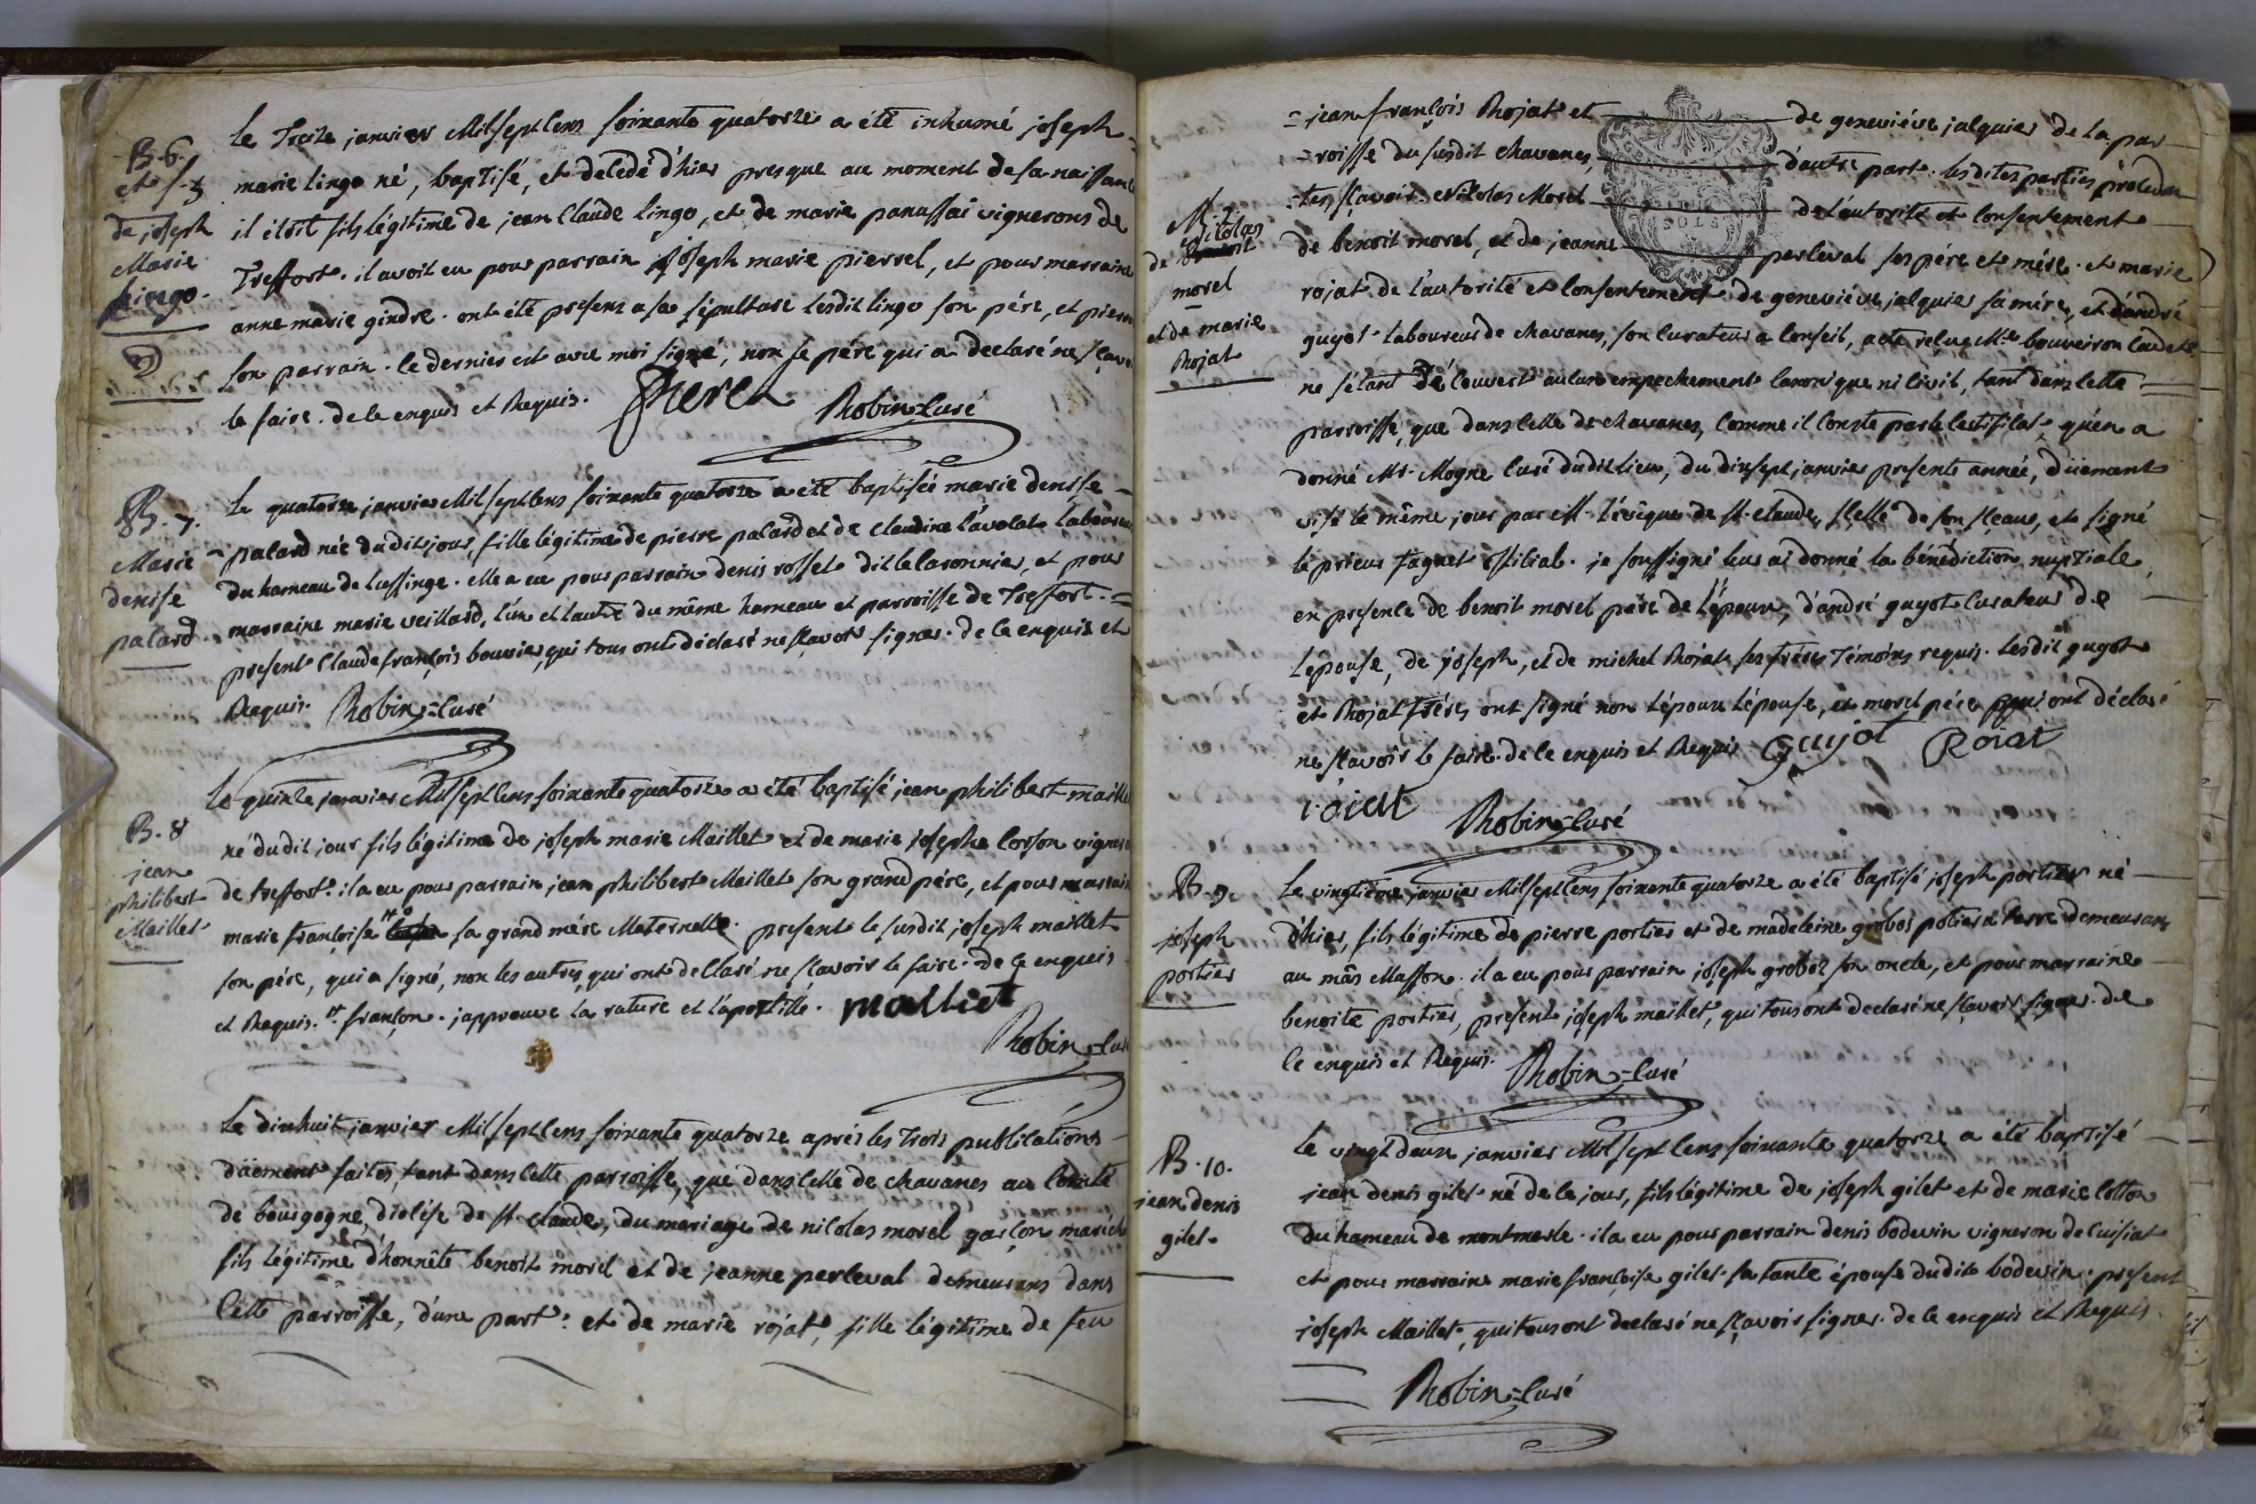 B. 6.
et S. 3
de joseph
Marie
Lingo.
Le Treize janvier Mil sept cens soixante quatorze a été inhumé joseph
marie lingo né, baptisé, et decedé d'hier presque au moment de sa naissance
il étoit fils légitime de jean Claude lingo, et de marie panassai vignerons de
Treffort. il avoit eu pour parrain joseph marie pierrel, et pour marraine
anne marie gindre. ont été presens a sa sépulture lesdit lingo son père, et
son parrain. le dernier est avec moi signé, non le père qui a declaré ne sçavoir
le faire. de ce enquis et Requis. Robin=Curé
B. 7.
Marie
denise
palard
Le quatorze janvier Mil sept cens soixante quatorze a été baptisée marie denise
palard née dudit jour, fille légitime de pierre palard et de Claudine Cavolat laboureurs
du hameau de Lussinge. elle a eu pour parrain denis rosset dit le caronnier, et pour
marraine marie veillard, l'un et l'autre du même hameau et parroisse de Treffort.
present Claude françois bouvier, qui tous ont déclaré ne sçavoir signer. de ce enquis et
Requis. Robin=Curé
B. 8
jean
philibert
Maillet
Le quinze janvier Mil sept cens soixante quatorze a été baptisé jean philibert maillet
né dudit jour fils légitime de joseph marie Maillet et de marie josephe Corson vignerons
de treffort. il a eu pour parrain jean philibert Maillet son grand père, et pour marraine
marie françoise sa grand mère Maternelle. present le susdit joseph maillet
son père, qui a signé, non les autres, qui ont declaré ne sçavoir le faire. de ce enquis
et Requis. françon. j'approuve la rature et l'apostille. malliet
Robin=Curé
Le dix huit janvier Mil sept cens soixante quatorze après les Trois publications
düement faites, tant dans cette parroisse, que dans celle de chavanes au Comté
de bourgogne, diocèse de St Claude, du mariage de nicolas morel garçon maréchal
fils légitime d'honnête benoit morel et de jeanne perceval demeurans dans
Cette parroisse, d'une part: et de marie rojat, fille légitime de feu
M. 1
de Nicolas
morel
et de marie
Rojat
=jean françois Rojat et de geneviève jalquier de la par
=roisse du susdit chavanes, d'autre part. les dites parties proceden
=tes sçavoir. Nicolas Morel de l'autorité et consentement
de benoit morel, et de jeanne perceval ses père et mère. et marie
rojat de l'autorité et consentement de geneviève jalquier sa mère, et d'andré
guyot laboureur de chavanes, son curateur a conseil, acte reçu Me bouveiron Cadet
ne s'étant découvert aucun empechement canonique ni civil, tant dans cette
parroisse, que dans celle de chavanes, comme il conste par le certificat, qu'en a
donné Mr. Mogne curé dudit lieu, du dix sept janvier presente année, düement
visé le même jour par Mr. l'évêque de St. claude, scellé de son sceau, et signé
le prieur faguet official. je soussigné leur ai donné la bénédiction nuptiale,
en presence de benoit morel père de l'époux, d'andré guyot curateur de
l'épouse, de joseph, et de michel Rojat ses frères Témoins requis. lesdit guyot
et Rojat frères ont signé non l'époux l'épouse, et morel père qui ont déclaré
ne sçavoir le faire. de ce enquis et Requis Guyot Roiat
roiat Robin=Curé
B. 9.
joseph
portier
Le vingtième janvier Mil sept cens soixante quatorze a été baptisé joseph portier né
d'hier, fils légitime de pierre portier et de madeleine grobos potiers a terre demeurans
au mâs Masson. il a eu pour parrain joseph groboz son oncle, et pour marraine
benoite portier, present joseph maillet, qui tous ont declaré ne sçavoir signer. de
ce enquis et Requis. Robin=Curé
B. 10.
jean denis
gilet
Le vingt deux janvier Mil sept cens soixante quatorze a été baptisé
jean denis gilet né de ce jour, fils légitime de joseph gilet et de marie cotton
du hameau de montmerle. il a eu pour parrain denis bodevin vigneron de Cuisiat
et pour marraine marie françoise gilet sa tante épouse dudit bodevin. present
joseph Maillet, qui tous ont declaré ne sçavoir signer. de ce enquis et Requis.
Robin=Curé